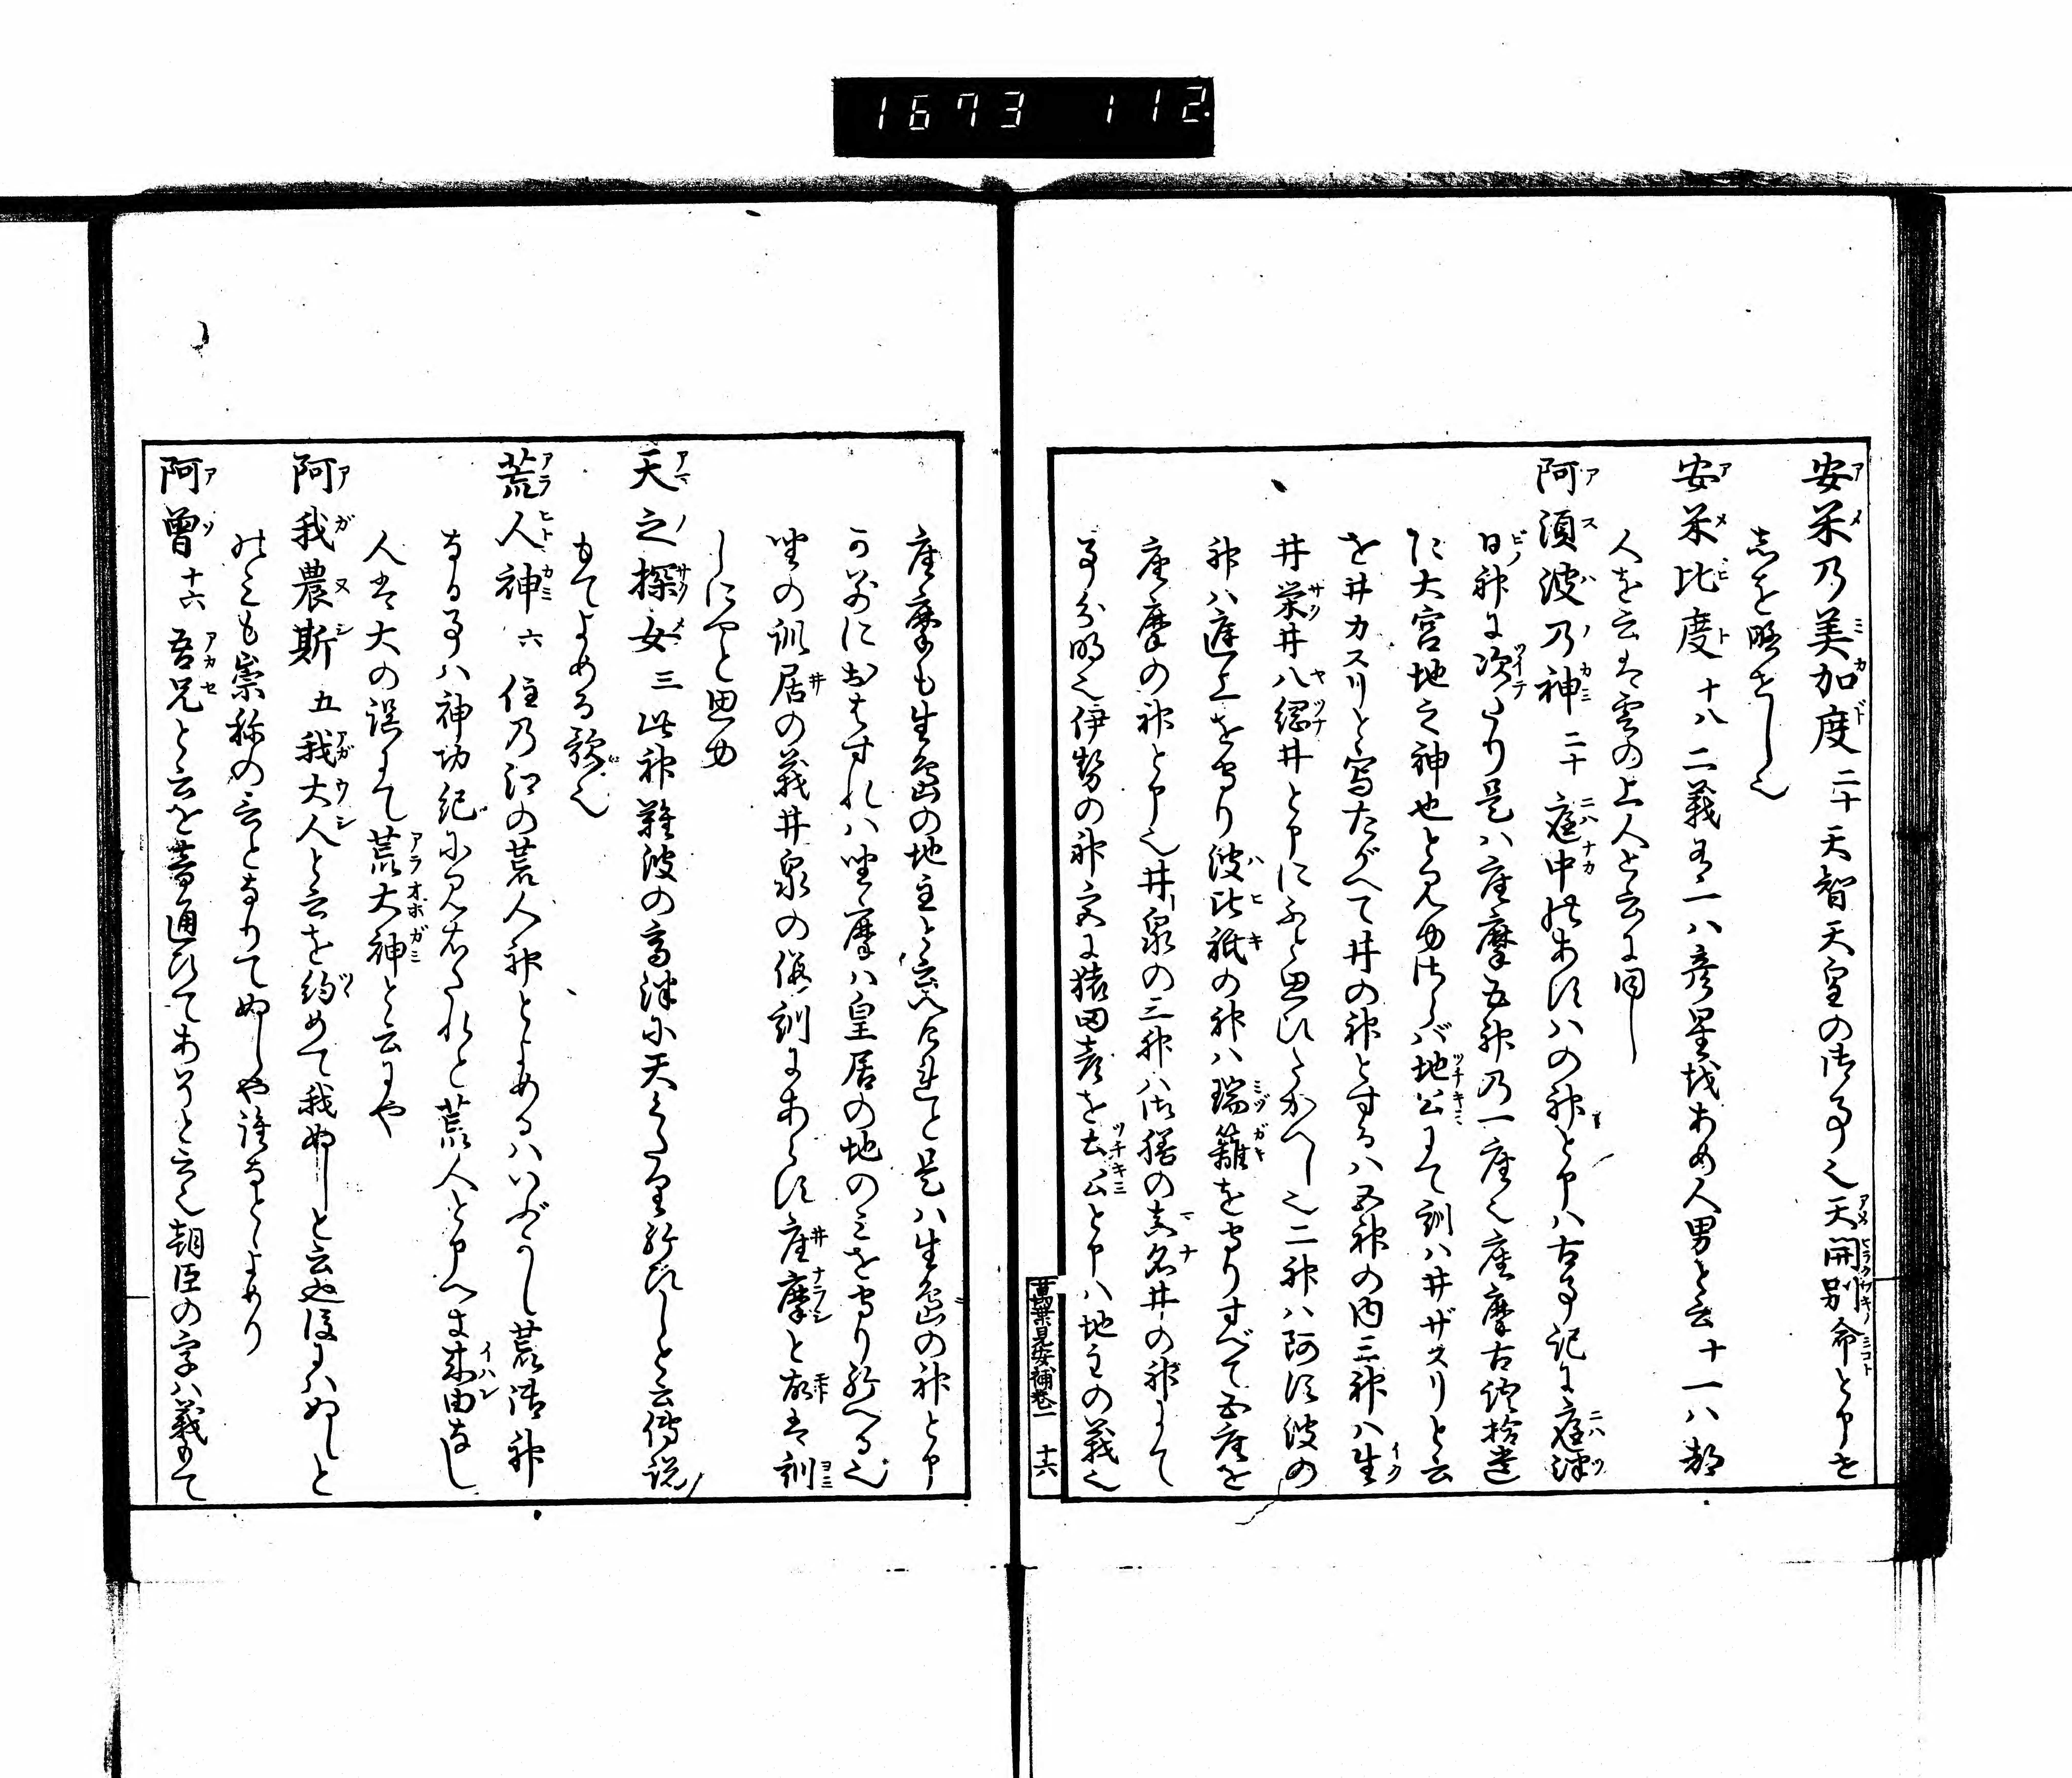 1673 112.
安米乃美加度 二十 天智天皇の御事也天開別命と申を
志を略せし也
安米比度 十八 二義有一ハ彦星哉あめ人男と云十一ハ都
人を云は雲の上人と云に同し
阿須波乃神 二十 庭中のあすハの神と申ハ古事記に庭津
日神に次たり是ハ座摩五神乃一座也座摩古語拾遺
に大宮地之神也と見ゆ然らば地公にて訓ハ井ザスリと云
を井カスリと寫たがへて井の神とするハ五神の内三神ハ生
井栄井八綱井と申にふと思ひたがへし也二神ハ阿須波の
神ハ庭上を守り波比祇の神ハ瑞籬を守りすべて五座を
座摩の神と申也井泉の三神ハ御膳の真名井の神にて
事分明也伊勢の神文に猿田彦を土公と申ハ地主の義也
萬葉見安補巻一 十六
座摩も生嶋の地主と云へけれと是ハ生嶋の神と申
かおはすれハ坐摩ハ皇居の地のみを守り給へる也
坐の訓居の義井泉の仮訓にあらす座摩と故は訓
しにやと思ゆ
天之探女 三 此神難波の高津に天くたり給ひしと云傳説
もてよめる歌也
荒人神 六 住乃江の荒人神とよめるハいぶかし荒御神
なる事ハ神功紀に見えたれと荒人と申へき来由なし
人は大の誤にて荒大神と云にや
阿我農斯 五 我大人と云を約めて我ぬしと云也後にハぬしと
のみも崇称の言となりてぬしや誰なとよめり
阿曽 十六 吾兄と云を音通ひてあそと云也朝臣の字ハ義もて